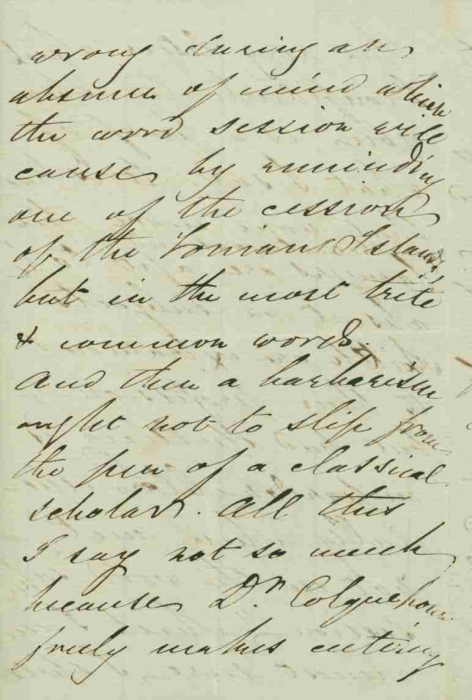 wrong during an
absence of mind which
the word session will
cause by reminding
one of the cession
of the Ionian Islands
but in the most trite
& common words.
And then a barbarism
ought not to slip from
the pen of a classical
scholar. All this
I say not so much
because Dr Colquhoun
makes